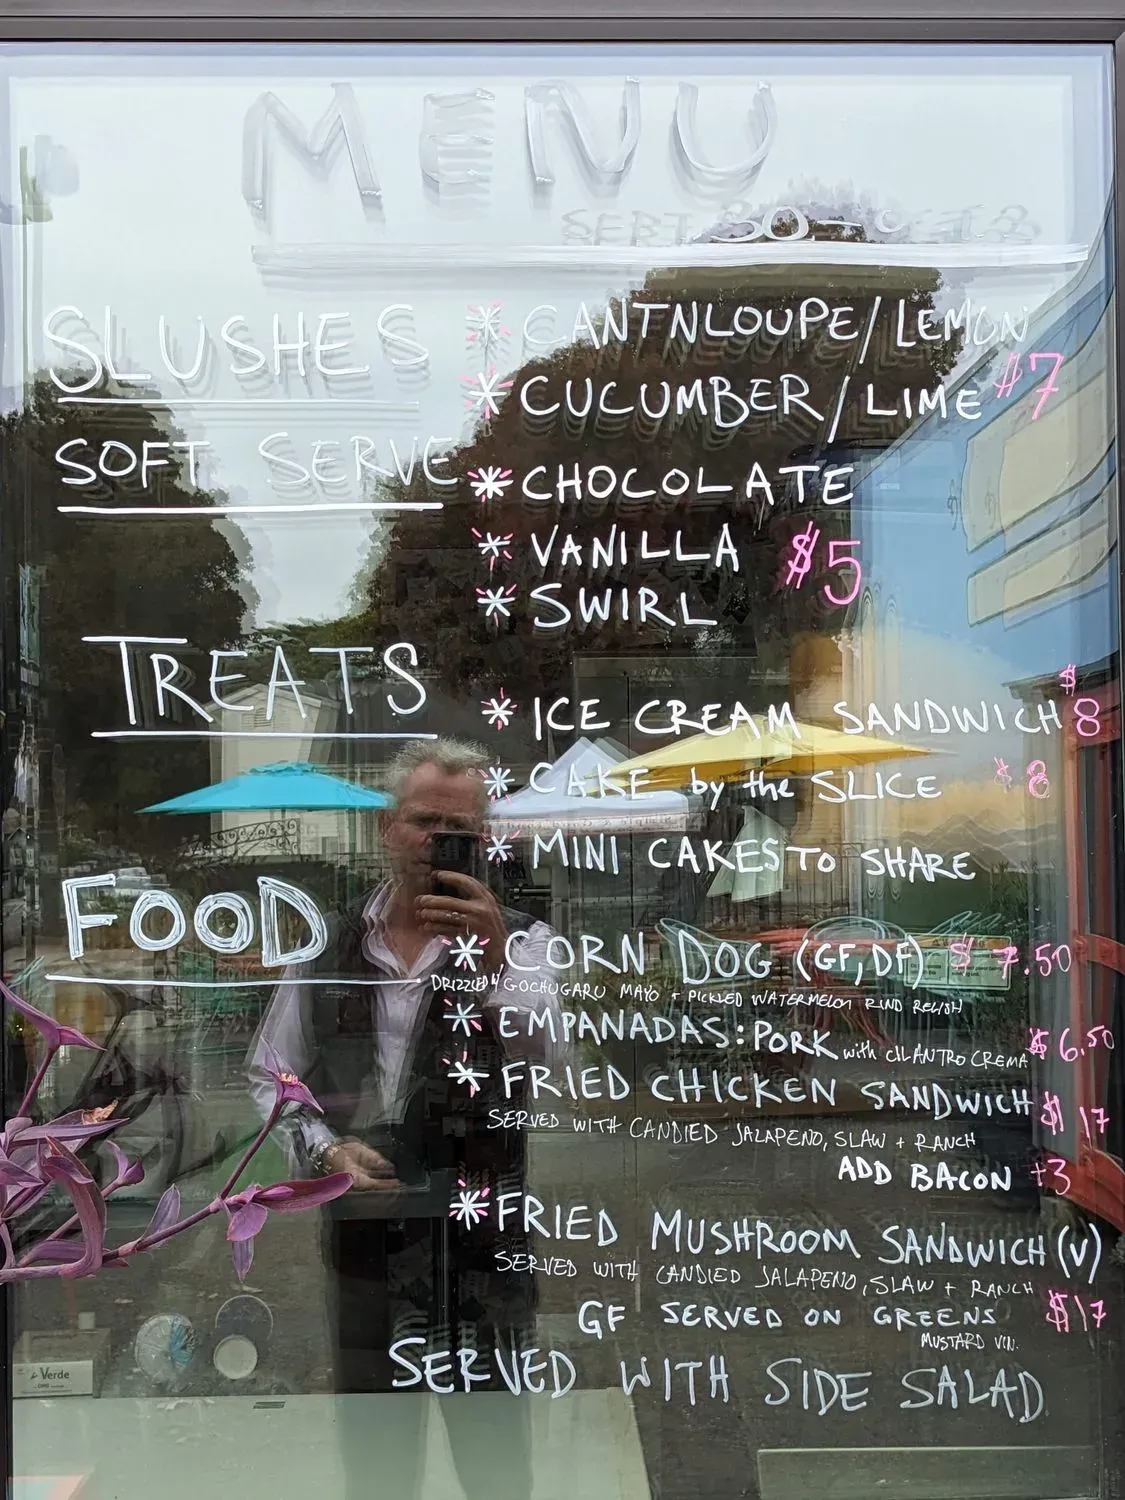 MENU
SEPT 30 - OCT 8
SLUSHES
* CANTNLOUPE/LEMON
* CUCUMBER/LIME $7
SOFT SERVE
* CHOCOLATE
* VANILLA $5
* SWIRL
TREATS
* ICE CREAM SANDWICH $8
* CAKE by the SLICE $8
* MINI CAKES TO SHARE
FOOD
* CORN DOG (GF,DF) $7.50
DRIZZLED W/ GOCHUGARU MAYO + PICKLED WATERMELON RIND RELISH
* EMPANADAS: PORK with CILANTRO CREMA $6.50
* FRIED CHICKEN SANDWICH $17
SERVED WITH CANDIED JALAPENO, SLAW + RANCH
ADD BACON +3
* FRIED MUSHROOM SANDWICH (V)
SERVED WITH CANDIED JALAPENO, SLAW + RANCH
GF SERVED ON GREENS $17
MUSTARD VIN.
SERVED WITH SIDE SALAD
Verde